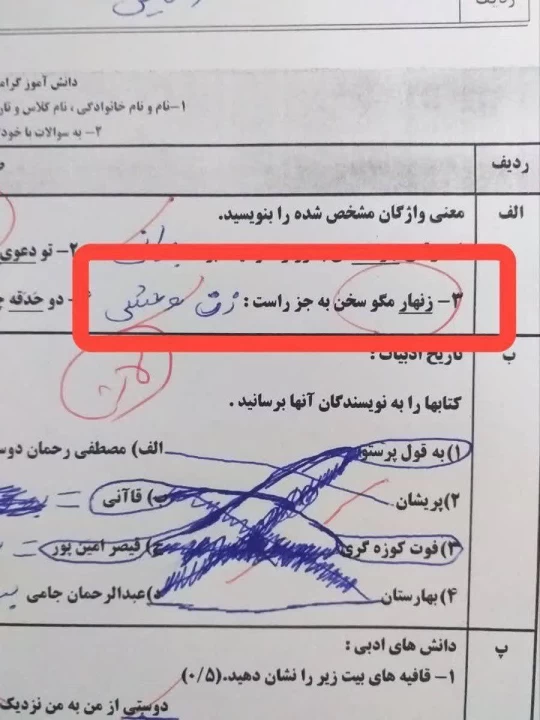 ردیف
دانش آموز گرام
۱-نام و نام خانوادگی ، نام کلاس و
۲- به سوالات با خود
ردیف
الف
معنی واژگان مشخص شده را بنویسید.
۲- تو دعوی
۳- زنهار مگو سخن به جز راست :
دو حدقه
ب
تاریخ ادبیات :
کتابها را به نویسندگان آنها برسانید .
۱) به قول پرستو
الف) مصطفی رحمان دوس
۲)پریشان
ب) قاآنی =
۳) فوت کوزه گری
ج) قیصر امین پور =
۴)بهارستان
د)عبدالرحمان جامی
پ
دانش های ادبی :
۱- قافیه های بیت زیر را نشان دهید.(۰/۵)
دوستی از من به من نزدیک